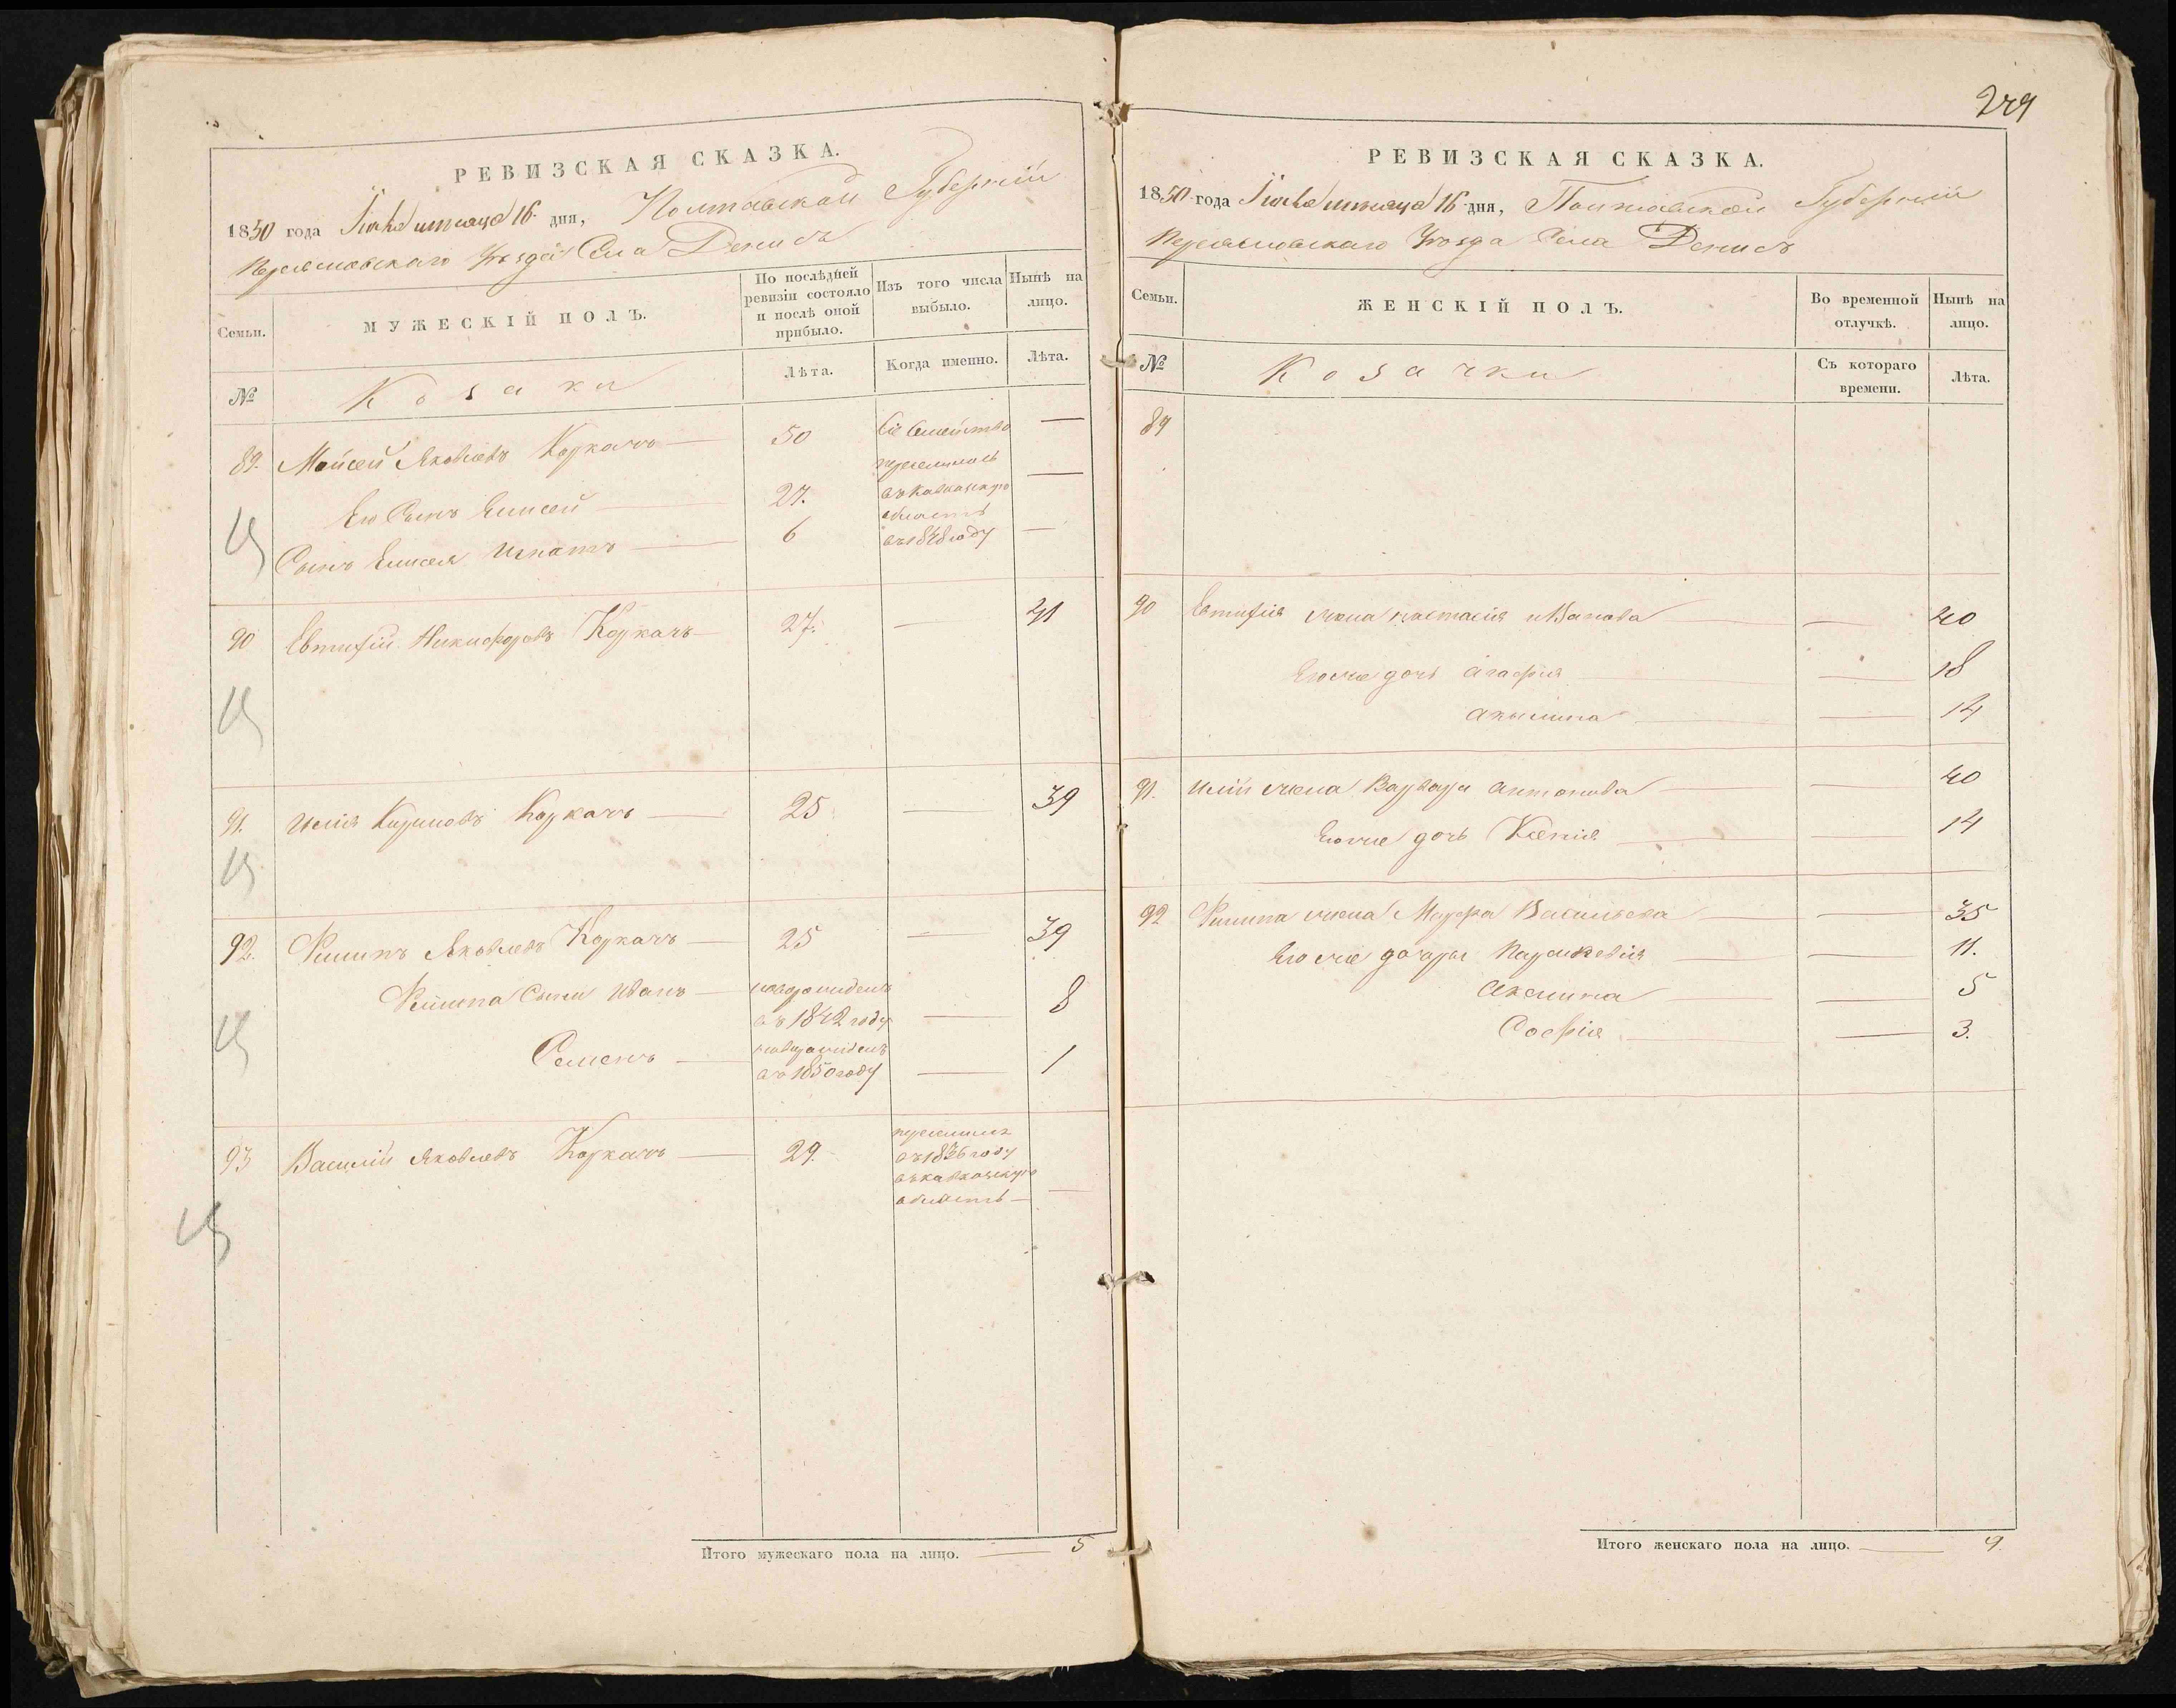 РЕВИЗСКАЯ СКАЗКА.
1850 года Іюля месяца 16 дня, Полтавской Губерніи
Переяславскаго Уезда Села Денисъ
Семьи.
МУЖЕСКІЙ ПОЛЪ.
По послѣдней ревизіи состояло и послѣ оной прибыло.
Изъ того числа выбыло.
Нынѣ на лицо.
№
Козаки
Лѣта.
Когда именно.
Лѣта.
89. Мойсей Яковлевъ Коркачъ — 50 Сіе Семейство —
переселилось
Его Сынъ Елисей — 27. въ Кавказскую —
область
Сынъ Елисея Игнатъ — 6 въ 1848 году —
90 Евтифій Никифоровъ Коркачъ — 27. — 41
91. Илія Кириловъ Коркачъ — 25 — 39
92. Филипъ Яковлевъ Коркачъ — 25 — 39
Филипа Сыни Иванъ — новорожденъ
въ 1842 году — 8
Семенъ — новорожденъ
въ 1850 году — 1
93 Василій Яковлевъ Коркачъ — 29. переселился
въ 1836 году
въ кавказскую
область — —
Итого мужескаго пола на лицо. — 5
249
РЕВИЗСКАЯ СКАЗКА.
1850 года Іюля месяца 16 дня, Полтавской Губерніи
Переяславскаго Уезда Села Денисъ
Семьи.
ЖЕНСКІЙ ПОЛЪ.
Во временной отлучкѣ.
Нынѣ на лицо.
№
Козачки
Съ котораго времени.
Лѣта.
89
90 Евтифія жена настасія иванова — — 40
Его же дочь агафія — — 18
акылина — — 14
91. Иліи жена Варвара антонова — — 40
Его же дочь Ксенія — — 14
92 Филипа жена Марфа Васильева — — 35
Его же дочери Параскевія — — 11.
Акилина — — 5
Софія — — 3.
Итого женскаго пола на лицо. — 9.